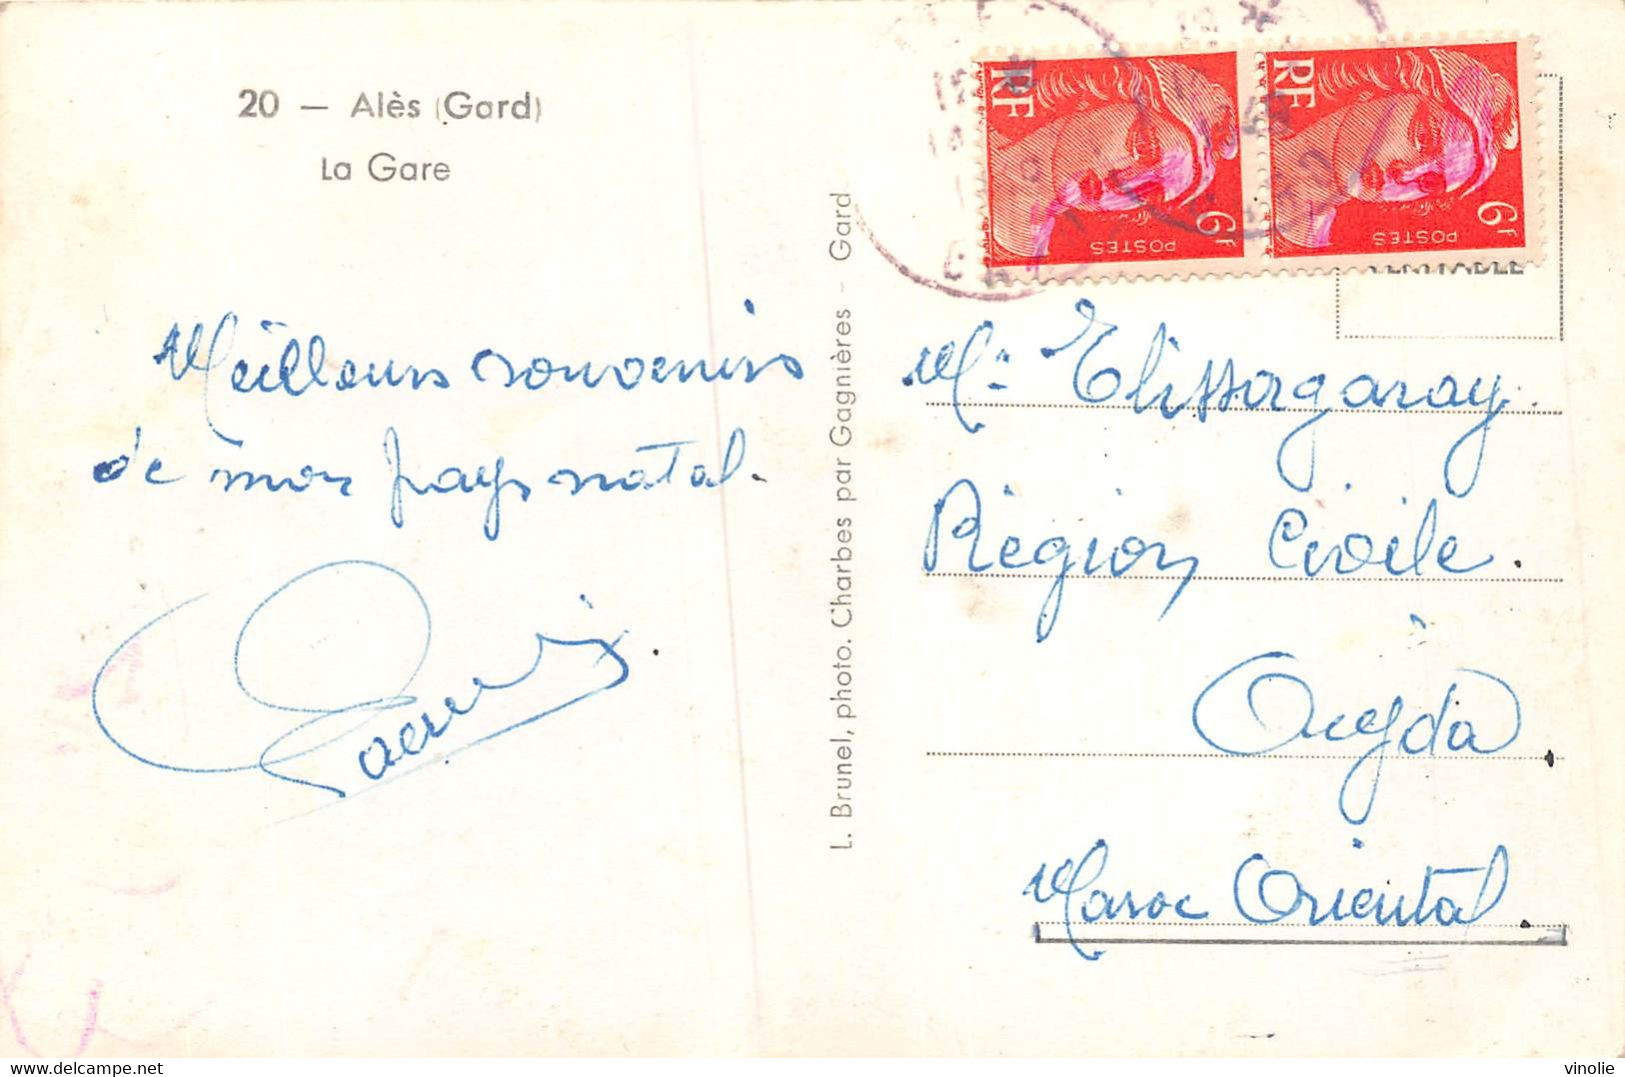 20 — Alès (Gard)
La Gare
Meilleurs souvenirs
de mon pays natal.
L. Brunel, photo. Charbes par Gagnières - Gard
RF
POSTES
6F
RF
POSTES
6F
Mr Elissagaray.
Région Civile.
Oujda
Maroc Oriental.
vinolie